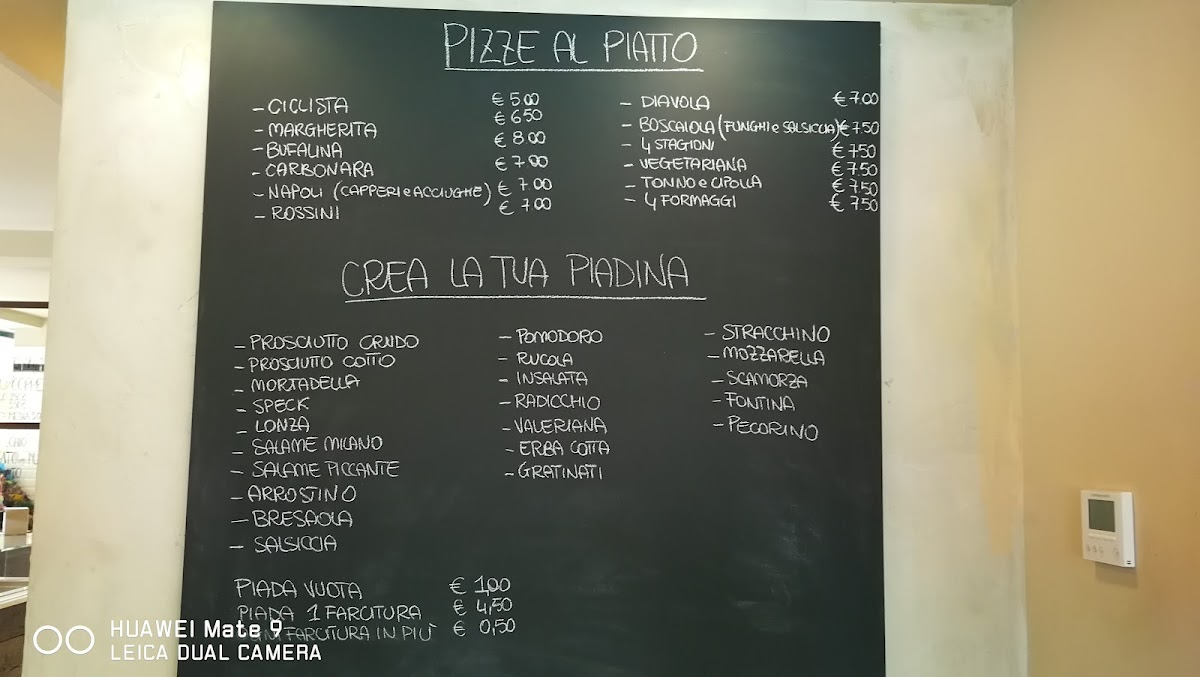 PIZZE AL PIATTO
- CICLISTA € 5.00
- MARGHERITA € 6.50
- BUFALINA € 8.00
- CARBONARA € 7.00
- NAPOLI (CAPPERI e ACCIUGHE) € 7.00
- ROSSINI € 7.00
- DIAVOLA € 7.00
- BOSCAIOLA (FUNGHI e SALSICCIA) € 7.50
- 4 STAGIONI € 7.50
- VEGETARIANA € 7.50
- TONNO e CIPOLLA € 7.50
- 4 FORMAGGI € 7.50
CREA LA TUA PIADINA
- PROSCIUTTO CRUDO
- PROSCIUTTO COTTO
- MORTADELLA
- SPECK
- LONZA
- SALAME MILANO
- SALAME PICCANTE
- ARROSTINO
- BRESAOLA
- SALSICCIA
- POMODORO
- RUCOLA
- INSALATA
- RADICCHIO
- VALERIANA
- ERBA COTTA
- GRATINATI
- STRACCHINO
- MOZZARELLA
- SCAMORZA
- FONTINA
- PECORINO
PIADA VUOTA € 1,00
PIADA 1 FARCITURA € 4,50
OGNI FARCITURA IN PIÙ € 0,50
HUAWEI Mate 9
LEICA DUAL CAMERA